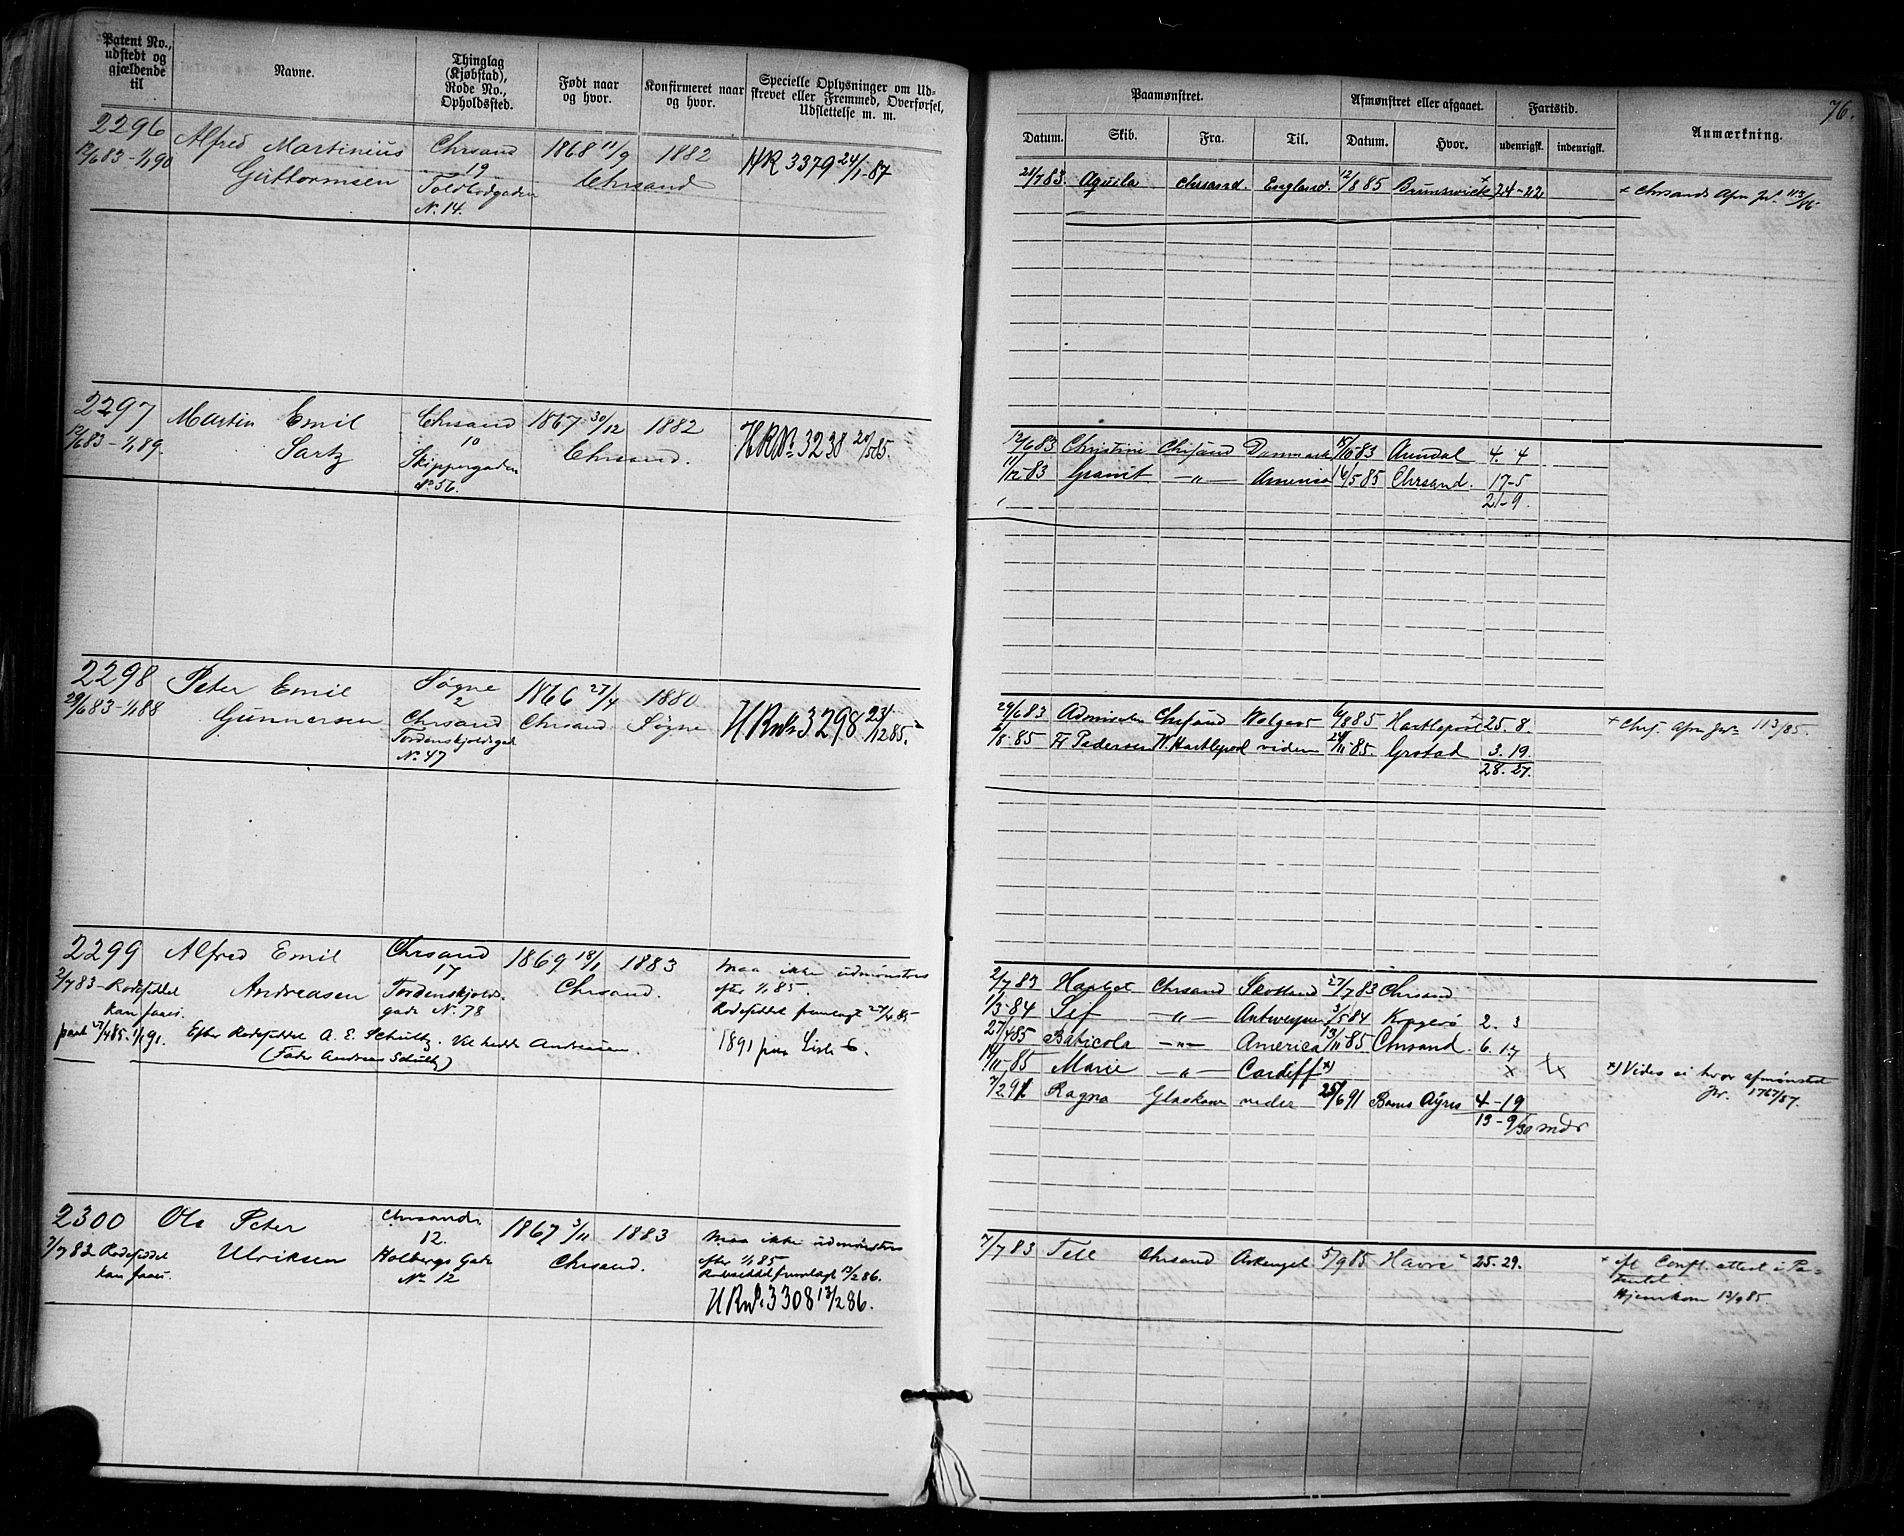 Patent No., udstedt og gjældende til
Navne.
Thinglag (Kjøbstad), Rode No., Opholdssted.
Født naar og hvor.
Konfirmeret naar og hvor.
Specielle Oplysninger om Udskrevet eller Fremmed, Overførsel, Udslettelse m. m.
76.
Paamønstret.
Afmønstret eller afgaaet.
Fartstid.
Anmærkning.
Datum. Skib. Fra. Til. Datum. Hvor. udenrigsk. indenrigsk.
2296 Alfred Martinius Chrsand 1868 11/9 1882 HR 3379 24/1-87
12/6 83-1/1 90 Guttormsen 19 Chrsand
Toldbodgaden
No. 14.
21/7 83 Aquila Chrsand. England. 12/8 85 Brunswick + 24-22 + Chrsands Afm Jr.
2297 Martin Emil Chrsand 1867 30/12 1882 HRNo. 3238
12/6 83-1/1 89. Sartz 10 Chrsand.
Skippergaden
No. 56.
12/6 83 Christine Chrsand Danmark 83 Arendal 4. 4
11/12-83 Granit -"- America 16/5 85 Chrsand. 17-5
21-9.
2298 Peter Emil Søgne 1866 27/4 1880 HRNo 3298 23/12 85.
29/6 83-1/1 88 Gunnersen 2 Chrsand Søgne
Chrsand
Tordenskjoldsgd
No. 47
29/6 83 Chrsand 6/8 85 Hartlepool + 25. 8. + Afm Jr 113/85.
6/8. 85 Fr Pedersen W. Hartlepool videre 85. Grstad 3. 19.
28. 27.
2299 Alfred Emil Chrsand 1869 18/1 1883 maa ikke udmønstres
2/7 83- Rodeseddel Andreasen 17 Chrsand. efter 1/1 85
kan faaes. Tordenskjolds- Rodeseddel fremlagt 27/4 85
gade No. 78
27/4 85-1/1 91. Efter Rodeseddel A. E. Schultz. Vil hedde Andreasen. 1891 paa Liste 6.
(Fader Andreas Schultz)
2/7 83 Chrsand Skotland 27/7 83 Chrsand
1/3-84 Lef -"- Antwerpen 3/5 84 Kragerø 2. 3
27/4 85 -"- America 13/11-85 Chrsand 6. 17
11-85 Marie -"- Cardiff x) x x) Vides ei hvor afmønstret
Jr. 1767/87.
7/2 91 Ragna videre 25/6 91 Ayres 4-19
13-9/30 mdr
2300 Ole Peter Chrsands 1867 3/11 1883 maa ikke udmønstres
7/7 83 Rodeseddel Ulriksen 12. Chrsand. efter 1/1 85
kan faaes. Holbergs Gade Rodeseddel fremlagt 13/2 86.
No 12 HRNo. 3308 13/2 86.
7/7 83 Tell Chrsand Arkangel 5/9 85 Havre + 25. 29. + ifl Conft. attest i Pa-
tentet
Hjemkom 13/9 85